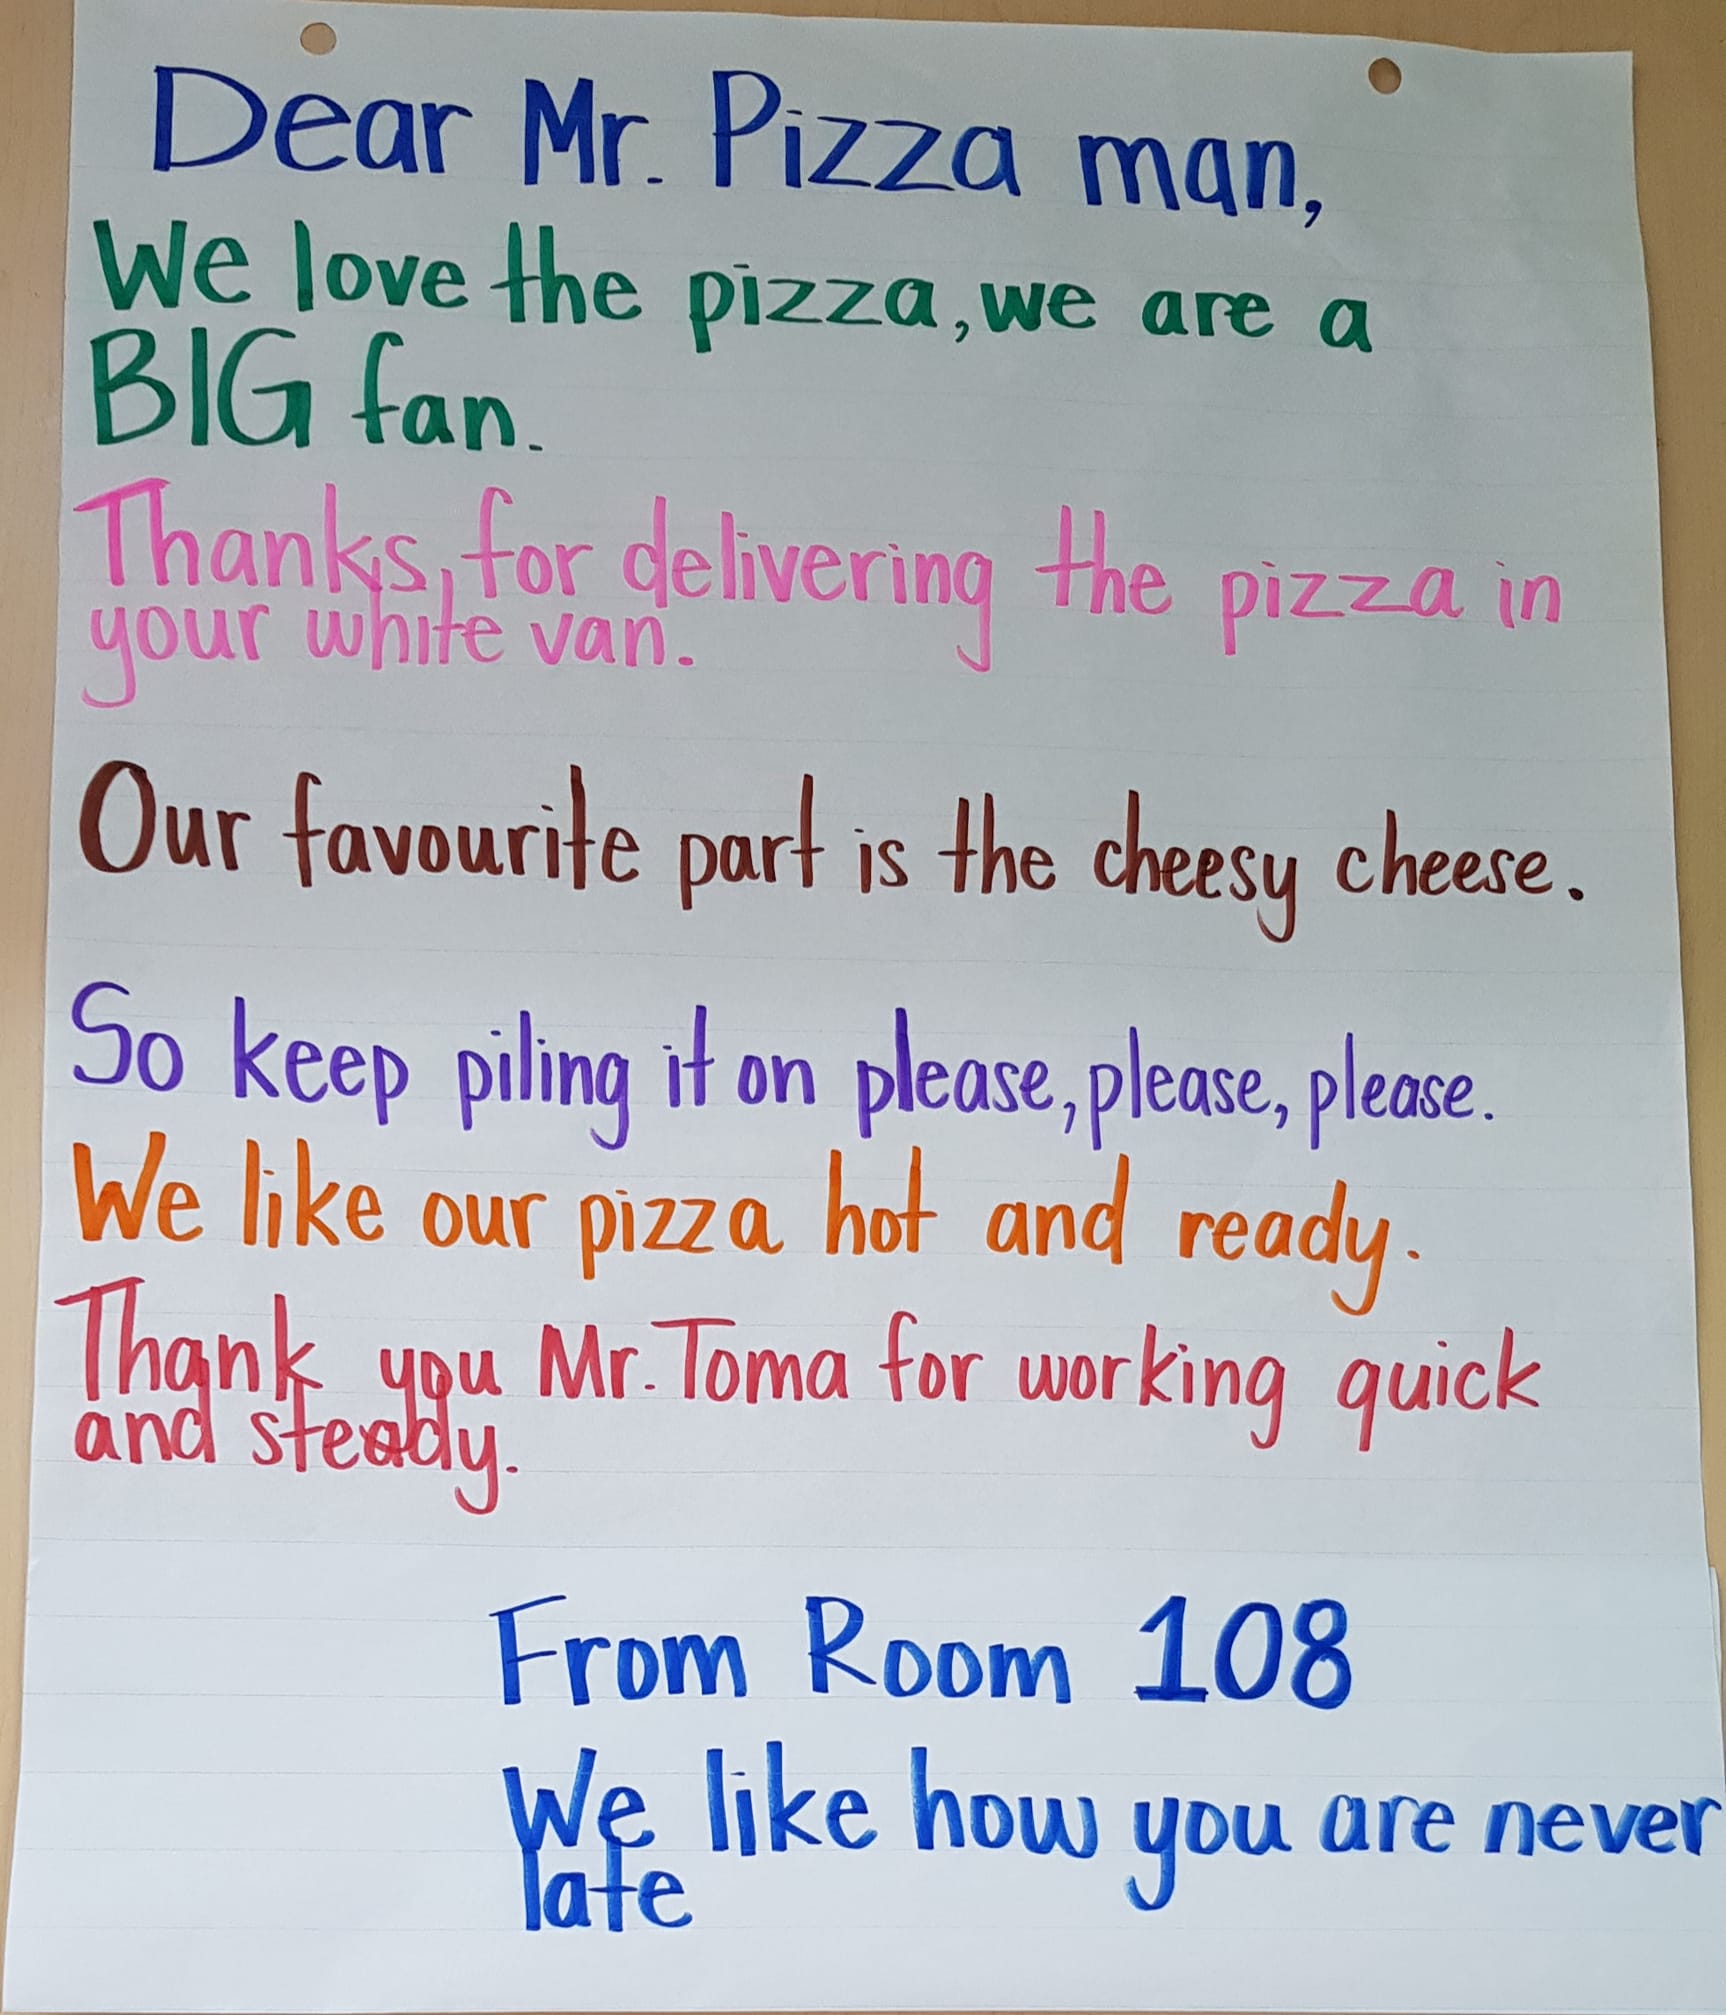 Dear Mr. Pizza man,
We love the pizza, we are a
BIG fan.
Thanks, for delivering the pizza in
your white van.
Our favourite part is the cheesy cheese.
So keep piling it on please, please, please.
We like our pizza hot and ready.
Thank you Mr. Toma for working quick
and steady.
From Room 108
We like how you are never
late